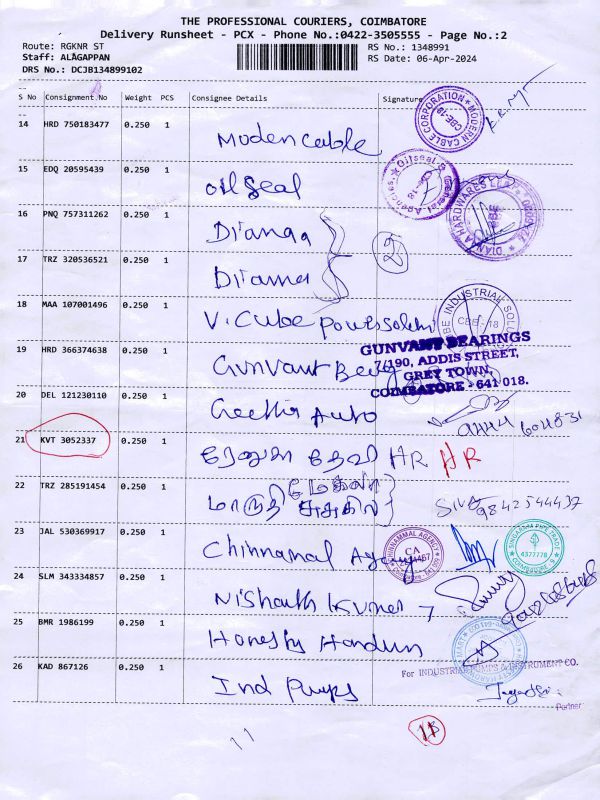 THE PROFESSIONAL COURIERS, COIMBATORE
Delivery Runsheet - PCX - Phone No.:0422-3505555 - Page No.:2
Route: RGKNR ST
RS No.: 1348991
Staff: ALAGAPPAN
RS Date: 06-Apr-2024
DRS No.: DCJB134899102
S No Consignment No Weight PCS Consignee Details Signature
14 HRD 750183477 0.250 1 Moden cable
MODERN CABLE CORPORATION CBE-18
15 EDQ 20595439 0.250 1 Oil Seal
Oilseal & General Agencies
16 PNQ 757311262 0.250 1 Dianaa
DIANA HARDWARES
17 TRZ 320536521 0.250 1 Diana
18 MAA 107001496 0.250 1 V. Cube
CBE - 18
19 HRD 366374638 0.250 1 Gunvant
GUNVANT BEARINGS
7/190, ADDIS STREET,
GREY TOWN,
COIMBATORE - 641 018.
20 DEL 121230110 0.250 1 Geetha Auto
9444 604831
21 KVT 3052337 0.250 1 ரேணுகா தேவி HR HR
22 TRZ 285191454 0.250 1 மாருதி
Siva 9842544437
23 JAL 530369917 0.250 1 Chinnamal Agency
CHINNAMMAL AGENCY CA
4377778
24 SLM 343334857 0.250 1 Nishanth Kumar
25 BMR 1986199 0.250 1
26 KAD 867126 0.250 1 Ind Pumps
For INDUSTRIAL PUMPS & INSTRUMENT CO.
Partner
11